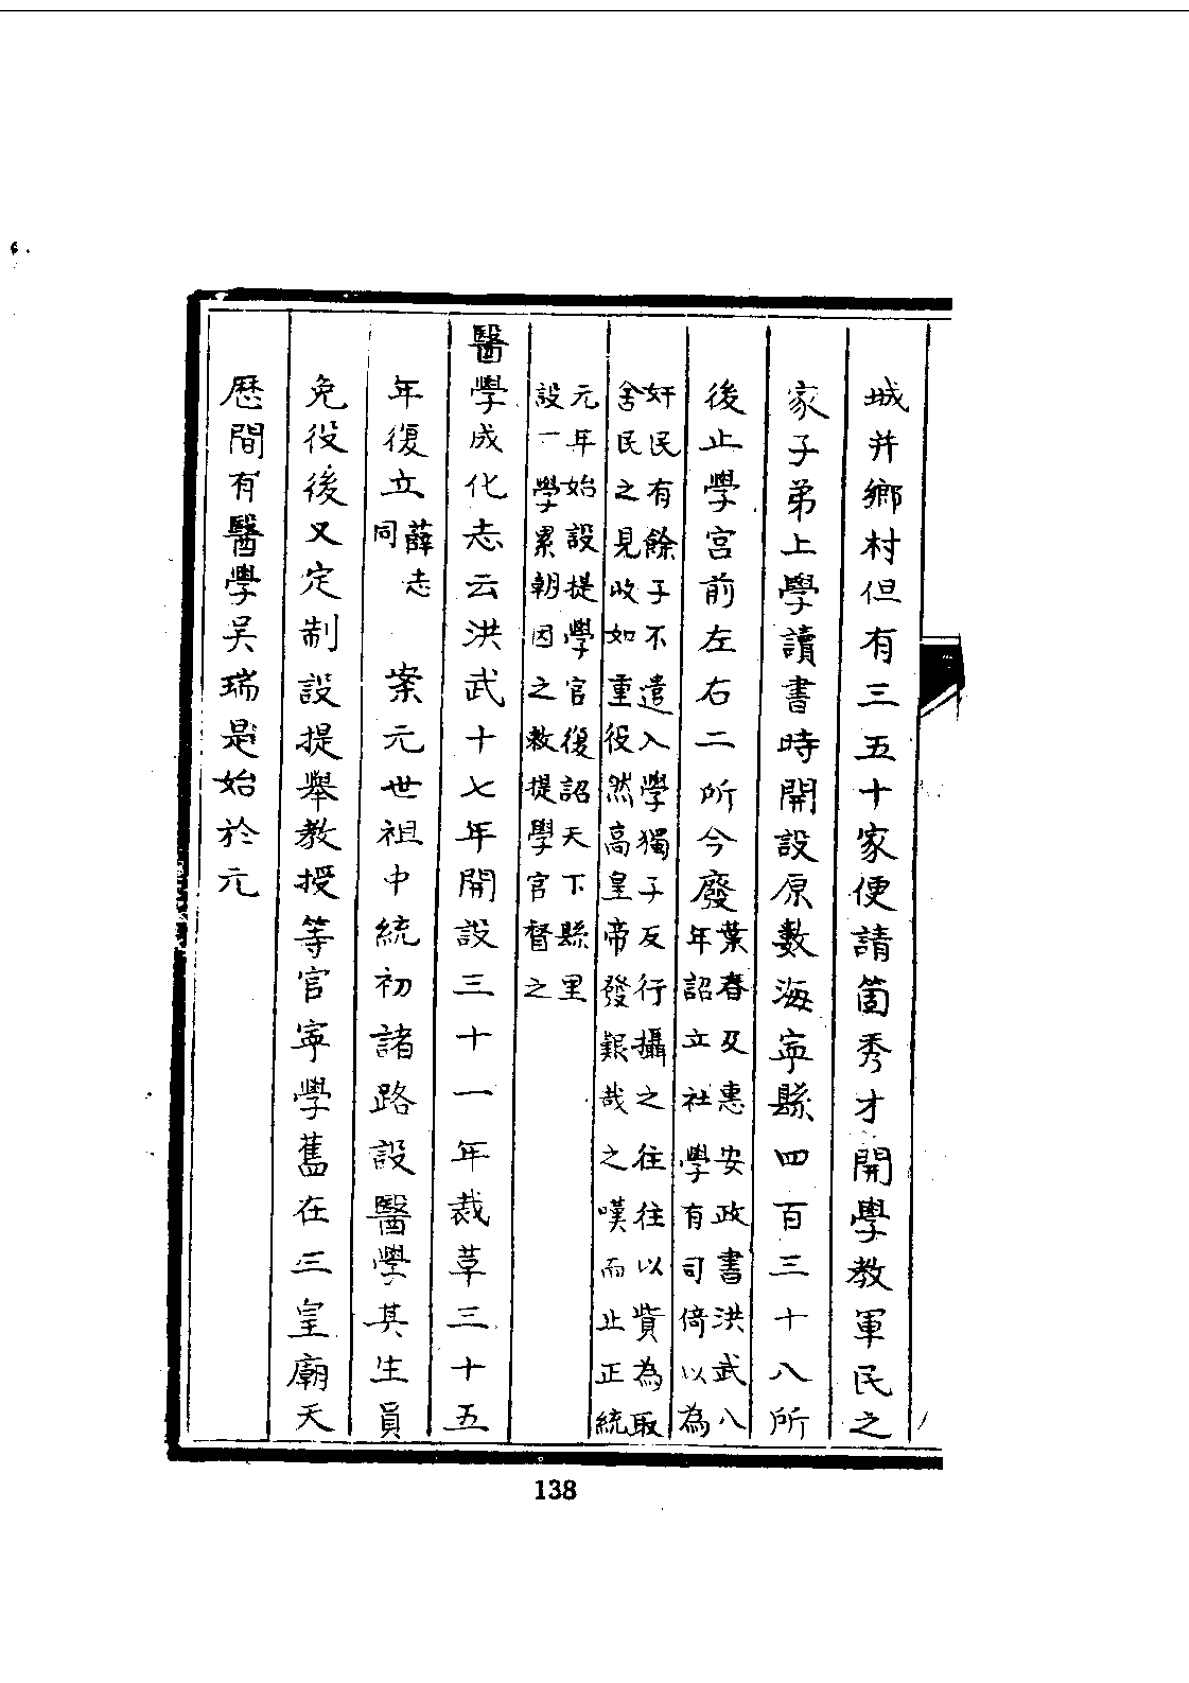 城并鄉村但有三五十家便請箇秀才開學教軍民之
家子弟上學讀書時開設原數海寧縣四百三十八所
後止學宮前左右二所今廢葉春及惠安政書洪武八
年詔立社學有司倚以為
奸民有餘子不遣入學獨子反行攝之往往以貲為取
舍民之見收如重役然高皇帝發艱哉之嘆而止正統
元年始設提學官復詔天下縣里
設一學累朝因之敕提學官督之
醫學成化志云洪武十七年開設三十一年裁革三十五
年復立薛志
同
案元世祖中統初諸路設醫學其生員
免役後又定制設提舉教授等官寧學舊在三皇廟天
歷間有醫學吳瑞是始於元
138